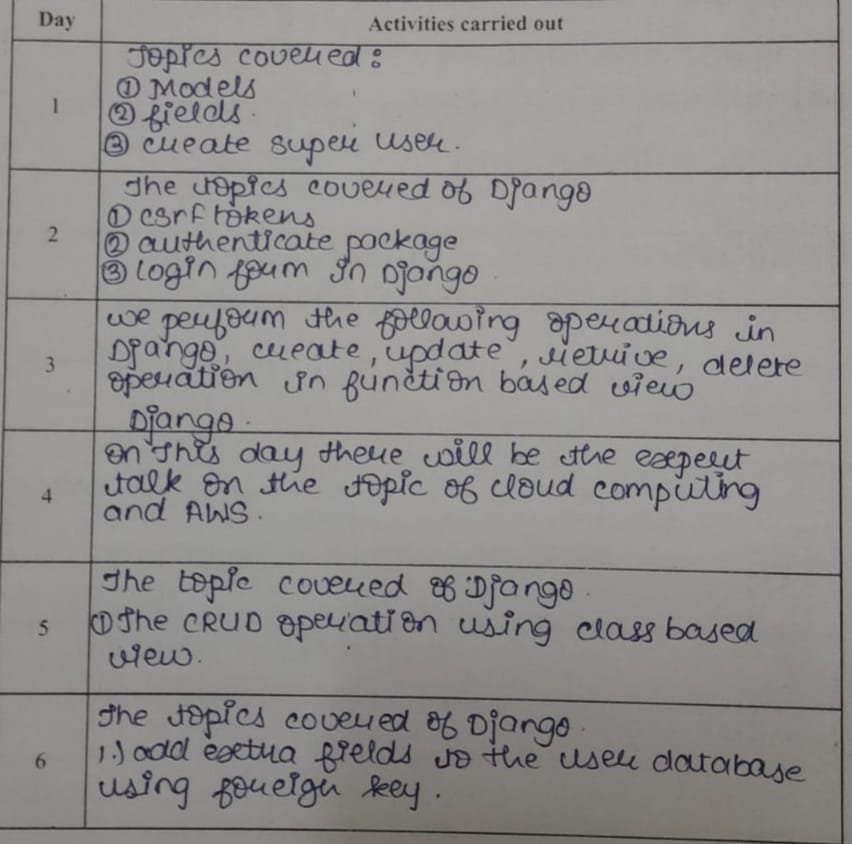 Day Activities carried out
1
Topics covered :
① Models
② fields.
③ create super user.
2
The topics covered of Django
① csrf tokens
② authenticate package
③ login form in Django.
3
we perform the following operations in
Django, create, update, retrive, delete
operation in function based view
Django.
4
on this day there will be the expert
talk on the topic of cloud computing
and AWS.
5
The topic covered of Django.
① The CRUD operation using class based
view.
6
The topics covered of Django.
1.) add extra fields to the user database
using foreign key.